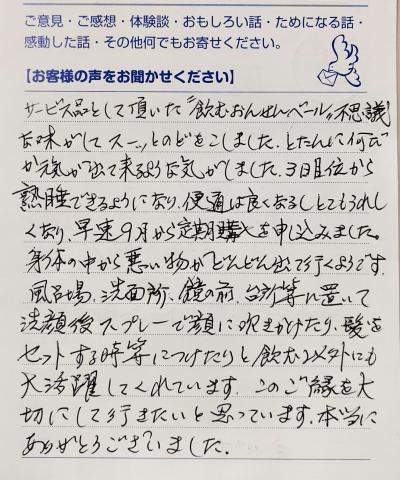 ご意見・ご感想・体験談・おもしろい話・ためになる話・
感動した話・その他何でもお寄せください。
【お客様の声をお聞かせください】
サービス品として頂いた〝飲むおんせんベール〟不思議
な味がしてスーッとのどをこしました。とたんに何だ
か元気が出て来るような気がしました。3日目位から
熟睡できるようになり、便通は良くなるしとてもうれし
くなり、早速9月から定期購入を申し込みました。
身体の中から悪い物がどんどん出て行くようです。
風呂場、洗面所、鏡の前、台所等に置いて
洗顔後スプレーで顔に吹きかけたり、髪を
セットする時等につけたりと飲む以外にも
大活躍してくれています。このご縁を大
切にして行きたいと思っています。本当に
ありがとうございました。